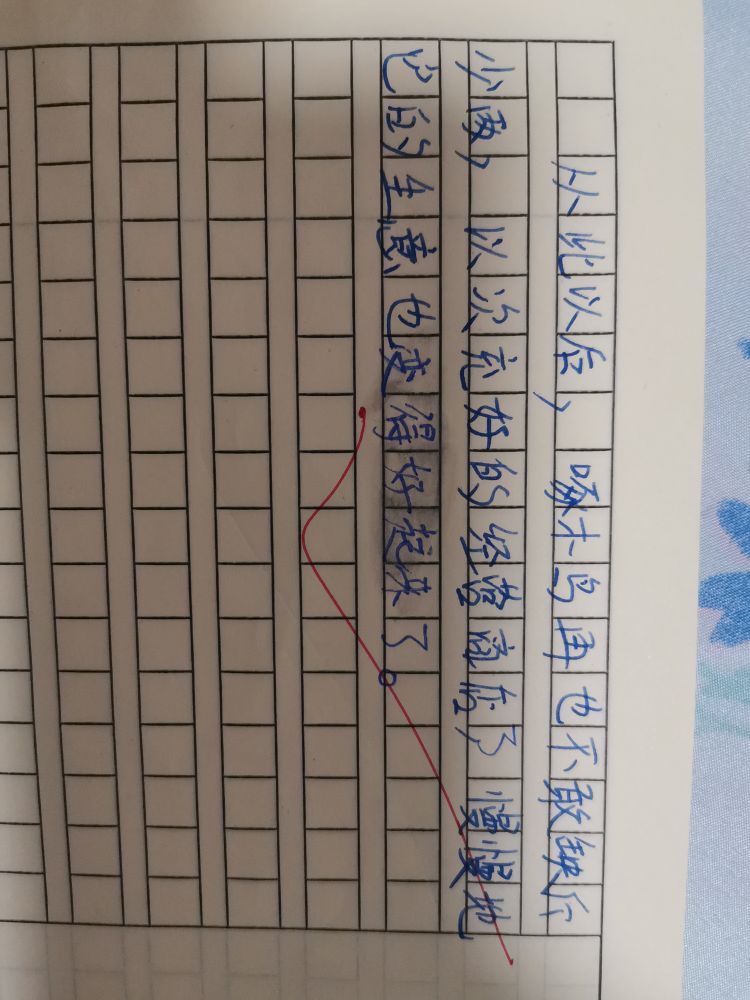 从此以后，啄木鸟再也不敢缺斤
少两，以次充好的经营商店了慢慢地
它的生意也变得好起来了。